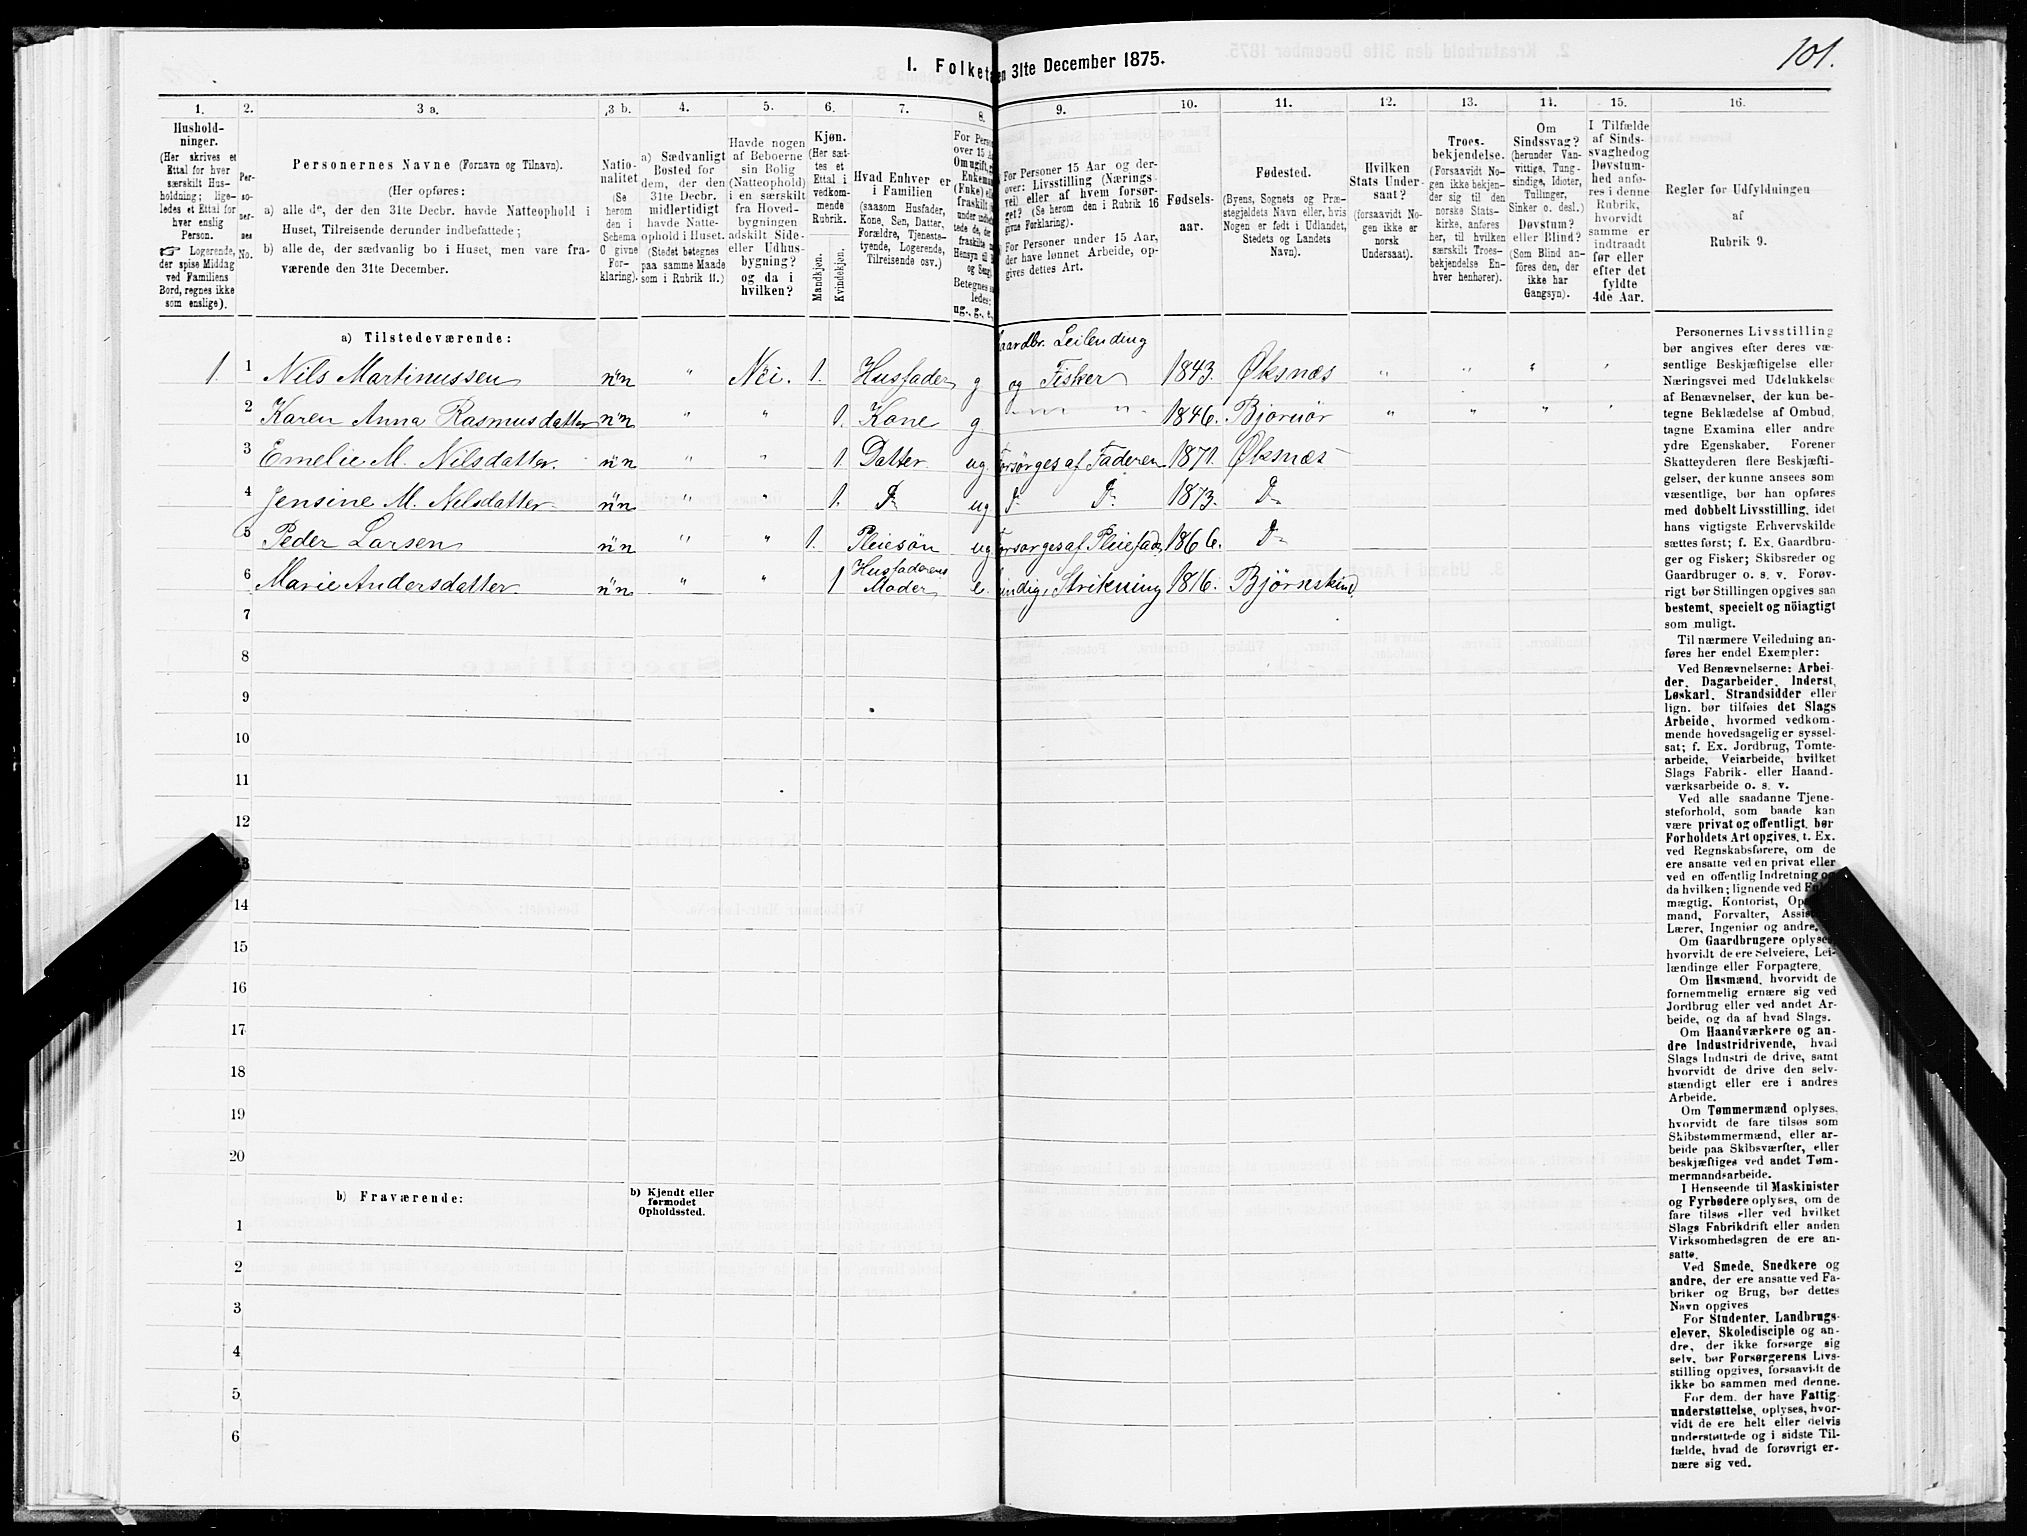 101.
I. Folket en 31te December 1875.
1. 2. 3 a. 3 b. 4. 5. 6. 7. 8. 9. 10. 11. 12. 13. 14. 15. 16.
Hushold-
ninger.
(Her skrives et
Ettal for hver
særskilt Hus-
holdning; lige-
ledes et Ettal for
hver enslig
Person.
☞ Logerende,
der spise Middag
ved Familiens
Bord, regnes ikke
som enslige).
Per-
so-
ner-
nes
No.
Personernes Navne (Fornavn og Tilnavn).
(Her opføres:
a) alle de, der den 31te Decbr. havde Natteophold i
Huset, Tilreisende derunder indbefattede;
b) alle de, der sædvanlig bo i Huset, men vare fra-
værende den 31te December.
Natio-
nalitet
(Se
herom
den i
Schema
O givne
For-
klaring).
a) Sædvanligt
Bosted for
dem, der den
31te Decbr.
midlertidigt
havde Natte-
ophold i Huset.
(Stedet betegnes
paa samme Maade
som i Rubrik 11.)
Havde nogen
af Beboerne
sin Bolig
(Natteophold)
i en særskilt
fra Hoved-
bygningen
adskilt Side-
eller Udhus-
bygning?
og da i
hvilken?
Kjøn.
(Her sæt-
tes et
Ettal i
vedkom-
mende
Rubrik.
Mandkjøn.
Kvindekjøn.
Hvad Enhver er
i Familien
(saasom Husfader,
Kone, Søn, Datter,
Forældre, Tjeneste-
tyende, Logerende,
Tilreisende osv.)
For Perso
over 15 A
Om ugift, g
Enkema
(Enke) el
fraskilt
under indbe
tede de, der
fraskilte
Hensyn til B
og Seng
Betegnes sa
ledes:
ug., g., e.,
For Personer 15 Aar og der-
over: Livsstilling (Nærings-
vei) eller af hvem forsør-
get? (Se herom den i Rubrik 16
givne Forklaring).
For Personer under 15 Aar,
der have lønnet Arbeide, op-
gives dettes Art.
Fødsels-
aar.
Fødested.
(Byens, Sognets og Præ-
stegjeldets Navn eller, hvis
Nogen er født i Udlandet,
Stedets og Landets
Navn).
Hvilken
Stats Under-
saat?
(forsaavidt No-
gen ikke er
norsk
Undersaat).
Troes-
bekjendelse.
(Forsaavidt No-
gen ikke bekjen-
der sig til den
norske Stats-
kirke, anføres
her, til hvilken
særskilt Troes-
bekjendelse En-
hver henhører).
Om
Sindssvag?
(herunder Van-
vittige, Tung-
sindige, Idioter,
Tullinger,
Sinker o. desl.)
Døvstum?
eller Blind?
(Som Blind an-
føres den, der
ikke har
Gangsyn).
I Tilfælde
af Sinds-
svaghed og
Døvstum-
hed anfø-
res i denne
Rubrik,
hvorvidt
samme er
indtraadt
før eller
efter det
fyldte
4de Aar.
Regler for Udfyldningen
af
Rubrik 9.
a) Tilstedeværende: aardbr. Leilending
1. 1 Nils Martinussen n'n " Nei. 1. Husfader g og Fisker 1843. Øksnæs " " " "
2 Karen Anna Rasmusdatter n'n " " 1. Kone g. " " 1846. Bjørnør " " " "
3 Emelie M. Nilsdatter. n'n " " 1 Datter. ug. orsørges af Faderen 1871. Øksnæs
4 Jensine M. Nilsdatter n'n " " 1. D ug D D 1873. D
5 Peder Larsen n'n " " 1. Pleiesøn ug orsørges af Pleiefad. 1866. D
6 Marie Andersdatter n'n " " 1 Husfaderens Moder e. indig, Strikning 1816. Bjørnskind.
7
8
9
10
11
12
13
14
15
16
17
18
19
20
b) Fraværende:
b) Kjendt eller
formodet
Opholdssted.
1
2
3
4
5
6
Personernes Livsstilling
bør angives efter deres væ-
sentlige Beskjæftigelse eller
Næringsvei med Udelukkelse
af Benævnelser, der kun be-
tegne Beklædelse af Ombud,
tagne Examina eller andre
ydre Egenskaber. Forener
Skatteyderen flere Beskjæfti-
gelser, der kunne ansees som
væsentlige, bør han opføres
med dobbelt Livsstilling, idet
hans vigtigste Erhvervskilde
sættes først; f. Ex. Gaardbru-
ger og Fisker; Skibsreder og
Gaardbruger o. s. v. Forøv-
rigt bør Stillingen opgives saa
bestemt, specielt og nöiagtigt
som muligt.
Til nærmere Veiledning an-
føres her endel Exempler:
Ved Benævnelserne: Arbei-
der, Dagarbeider, Inderst,
Løskarl, Strandsidder eller
lign. bør tilføies det Slags
Arbeide, hvormed vedkom-
mende hovedsagelig er syssel-
sat; f. Ex. Jordbrug, Tomte-
arbeide, Veiarbeide, hvilket
Slags Fabrik- eller Haand-
værksarbeide o. s. v.
Ved alle saadanne Tjene-
steforhold, som baade kan
være privat og offentligt, bør
Forholdets Art opgives, t. Ex.
ved Regnskabsførere, om de
ere ansatte ved en privat eller
ved en offentlig Indretning og
da hvilken; lignende ved
mægtig, Kontorist,
mand, Forvalter,
Lærer, Ingeniør og andre.
Om Gaardbrugere oplyses,
hvorvidt de ere Selveiere, Lei-
lændinge eller Forpagtere.
Om Husmænd, hvorvidt de
fornemmelig ernære sig ved
Jordbrug eller ved andet Ar-
beide, og da af hvad Slags.
Om Haandværkere og an-
dre Industridrivende, hvad
Slags Industri de drive, samt
hvorvidt de drive den selv-
stændigt eller ere i andres
Arbeide.
Om Tømmermænd oplyses,
hvorvidt de fare tilsøs som
Skibstømmermænd, eller ar-
beide paa Skibsværfter, eller
beskjæftiges ved andet Tøm-
mermandsarbeide.
I Henseende til Maskinister
og Fyrbødere oplyses, om de
fare tilsøs eller ved hvilket
Slags Fabrikdrift eller anden
Virksomhedsgren de ere an-
satte.
Ved Smede, Snedkere og
andre, der ere ansatte ved Fa-
briker og Brug, bør dettes
Navn opgives
For Studenter, Landbrugs-
elever, Skoledisciple og an-
dre, der ikke forsørge sig
selv, bør Forsørgerens Livs-
stilling opgives, forsaavidt de
ikke bo sammen med denne.
For dem, der have Fattig-
understøttelse, oplyses, hvor-
vidt de ere helt eller delvis
understøttede og i sidste Til-
fælde, hvad de forøvrigt er-
nære sig ved.